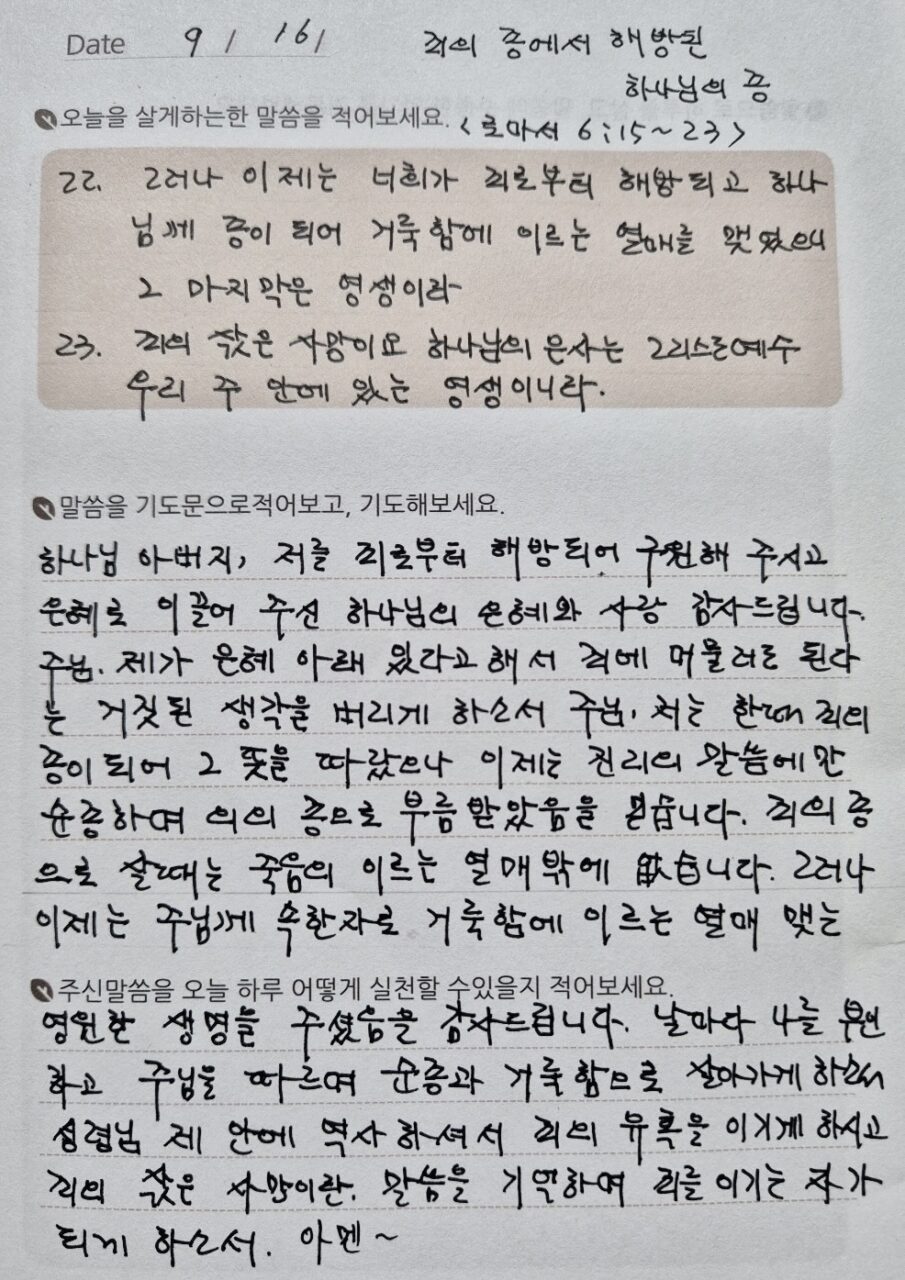 Date 9 / 16 /
죄의 종에서 해방된
하나님의 종
오늘을 살게하는한 말씀을 적어보세요. <로마서 6:15~23>
22. 그러나 이제는 너희가 죄로부터 해방되고 하나
님께 종이 되어 거룩함에 이르는 열매를 맺었으니
그 마지막은 영생이라
23. 죄의 삯은 사망이요 하나님의 은사는 그리스도예수
우리 주 안에 있는 영생이니라.
말씀을 기도문으로적어보고, 기도해보세요.
하나님 아버지, 저를 죄로부터 해방되어 구원해 주시고
은혜로 이끌어 주신 하나님의 은혜와 사랑 감사드립니다.
주님. 제가 은혜 아래 있다고 해서 죄에 머물러도 된다
는 거짓된 생각을 버리게 하소서 주님, 저는 한때 죄의
종이 되어 그 뜻을 따랐으나 이제는 진리의 말씀에만
순종하며 의의 종으로 부름받았음을 믿습니다. 죄의 종
으로 살때는 죽음의 이르는 열매밖에 없습니다. 그러나
이제는 주님께 속한자로 거룩함에 이르는 열매 맺는
주신말씀을 오늘 하루 어떻게 실천할 수있을지 적어보세요.
영원한 생명을 주셨음을 감사드립니다. 날마다 나를 부인
하고 주님을 따르며 순종과 거룩함으로 살아가게 하소서
성령님 제 안에 역사하셔서 죄의 유혹을 이기게 하시고
죄의 삯은 사망이란. 말씀을 기억하며 죄를 이기는 자가
되게 하소서. 아멘~